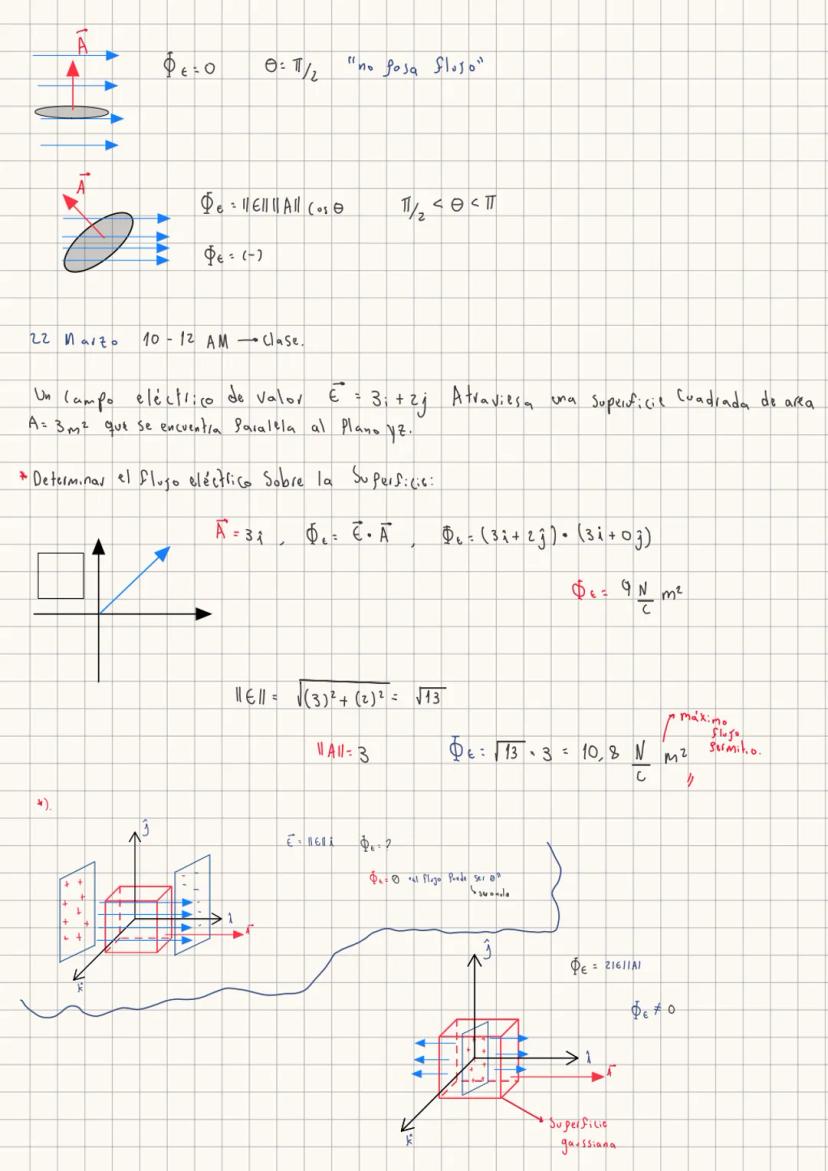 A
Φε=0 θ=π/2 "no pasa flujo"
A
Φε=‖E‖‖A‖ cos θ π/2 < θ < π
Φε=(-)
22 Marzo 10-12 AM → clase.
Un campo eléctrico de valor E = 3i + 2j Atraviesa una superficie cuadrada de area
A= 3m² que se encuentra paralela al plano yz.
* Determinar el flujo eléctrico sobre la superficie:
A = 3i , Φε = E · A , Φε = (3i + 2j) · (3i + 0j)
Φε = 9 N/C m²
‖E‖ = √(3)² + (2)² = √13
máximo
flujo
permitio.
‖A‖= 3 Φε = √13 · 3 = 10,8 N/C m²
*).
j
E = ‖E‖ i Φε = ?
Φε = 0 "el flujo puede ser 0"
i
A
k
j
Φε = 2|E||A|
Φε ≠ 0
i
A
k
Superficie
gaussiana